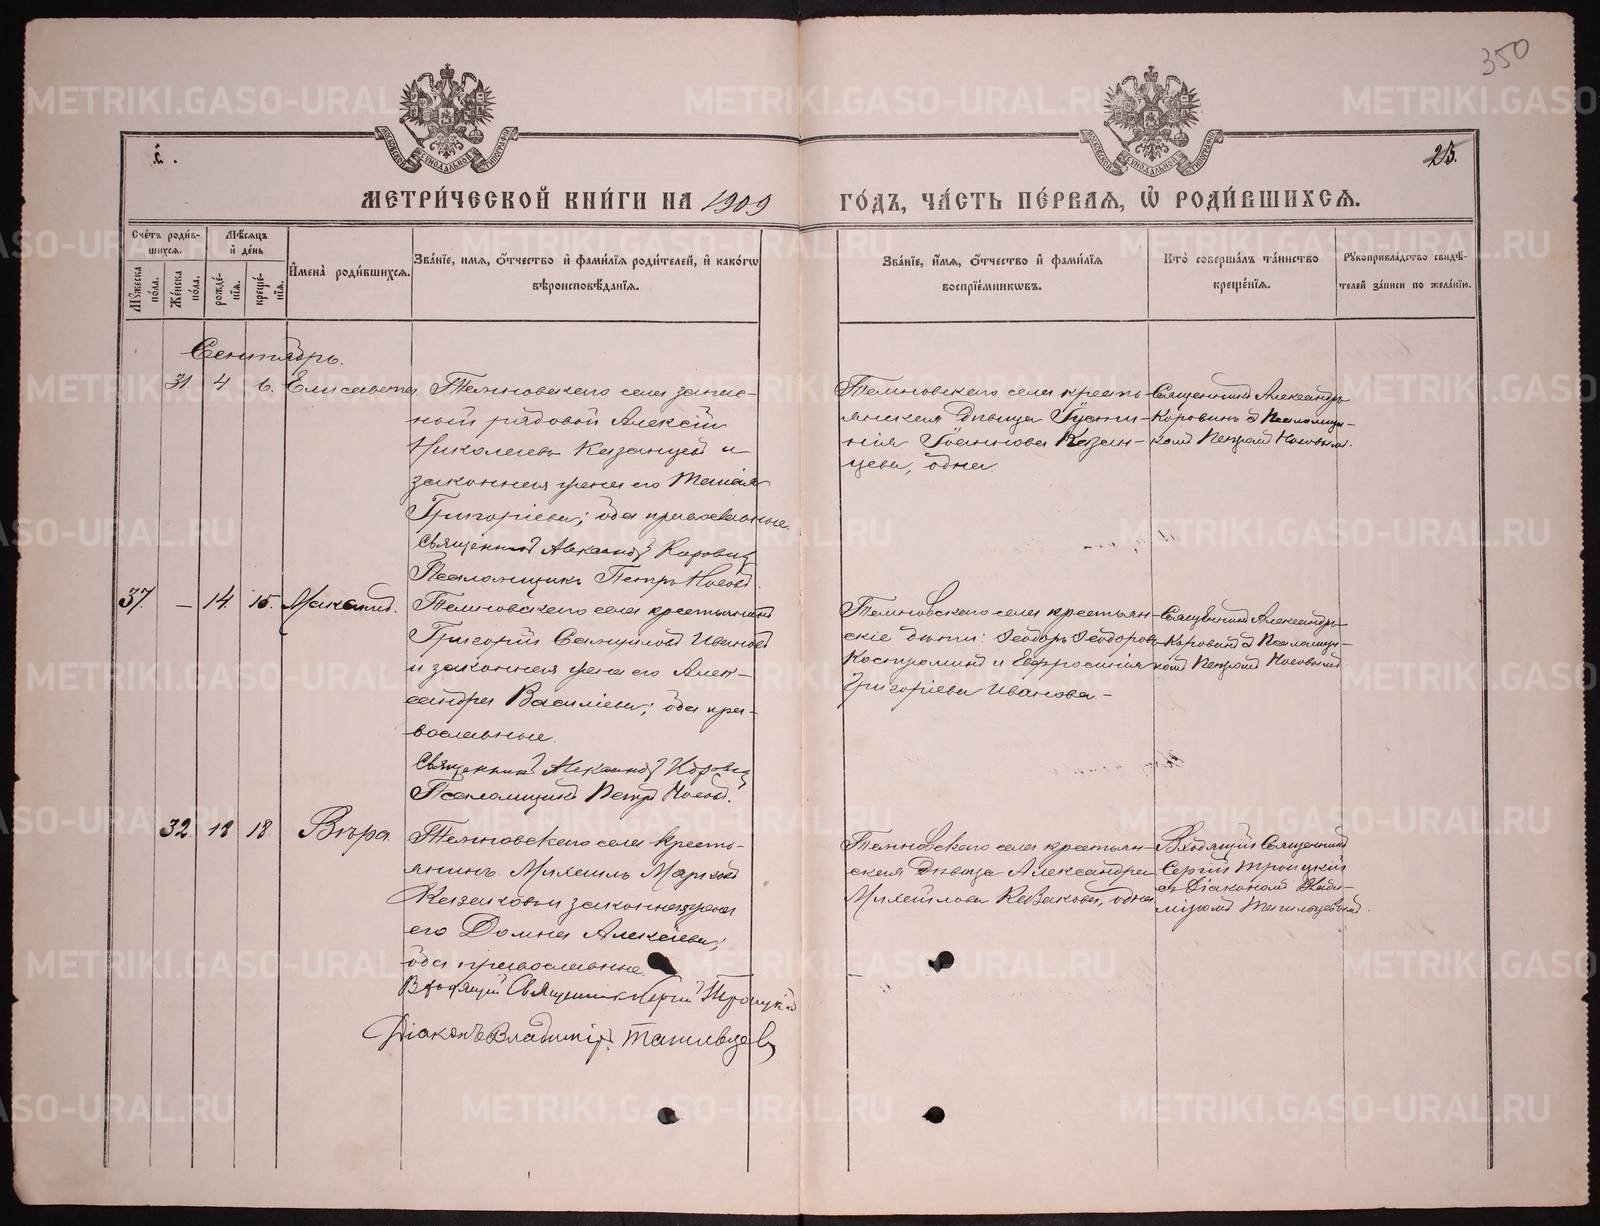 350
і.
23.
МЕТРИ́ЧЕСКОЙ КНИ́ГИ НА 1909
ГО́ДЪ, ЧА́СТЬ ПЕ́РВАЯ, Ѽ РОДИ́ВШИХСЯ.
Сче́тъ роди́в-
шихся.
Мꙋ́жеска по́ла.
Же́нска по́ла.
Мѣ́сяцъ
и҆ де́нь
рожде́-нїя.
креще́-нїя.
И҆мена̀ роди́вшихся.
Зва́нїе, и҆мя, ѻ҆́тчество и҆ фами́лїя роди́телей, и҆ како́гѡ
вѣроисповѣ́данїя.
Зва́нїе, и҆́мя, ѻ҆́тчество и҆ фами́лїя
воспрїе́мникѡвъ.
Кто̀ соверша́лъ та́инство
креще́нїя.
Рꙋкоприкла́дство свидѣ́-
телей за́писи по жела́нїю.
Сентябрь.
31 4 6. Елисавета
Темновскаго села запас-
ной рядовой Алексій
Николаевъ Казанцевъ и
законная жена его
Григоріева; оба православные.
Священникъ Александръ Коровинъ
Псаломщикъ Петръ Носовъ.
Темновскаго села кресть-
янская дѣвица Іусти-
нія Іоаннова Казан-
цева, одна.
Священникъ Александръ
Коровинъ съ Псаломщи-
комъ Петромъ Носовымъ.
37. – 14. 15.
Темновскаго села крестьянинъ
Григорій Самуиловъ Ивановъ
и законная жена его Алек-
сандра Василіева; оба пра-
вославные.
Священникъ Александръ Коровинъ
Псаломщикъ Петръ Носовъ.
Темновскаго села крестьян-
скіе дѣти: Ѳеодоръ Ѳеодоровъ
Костроминъ и Евфросинія
Григоріева Иванова.–
Священникъ Александръ
Коровинъ съ Псаломщи-
комъ Петромъ Носовымъ
32. 18 18. Вѣра.
Темновскаго села кресть-
янинъ Михаилъ Марковъ
и законная жена
его Домна Алексіева;
оба православные.
Входящій Священникъ Сергій Троицкій
Діаконъ Владиміръ Тагильцевъ
Темновскаго села крестьян-
ская дѣвица Александра
Михаилова Казакова, одна
Входящій Священникъ
Сергій Троицкій
съ Діакономъ Влади-
міромъ Тагильцевымъ.
METRIKI.GASO-URAL.RU